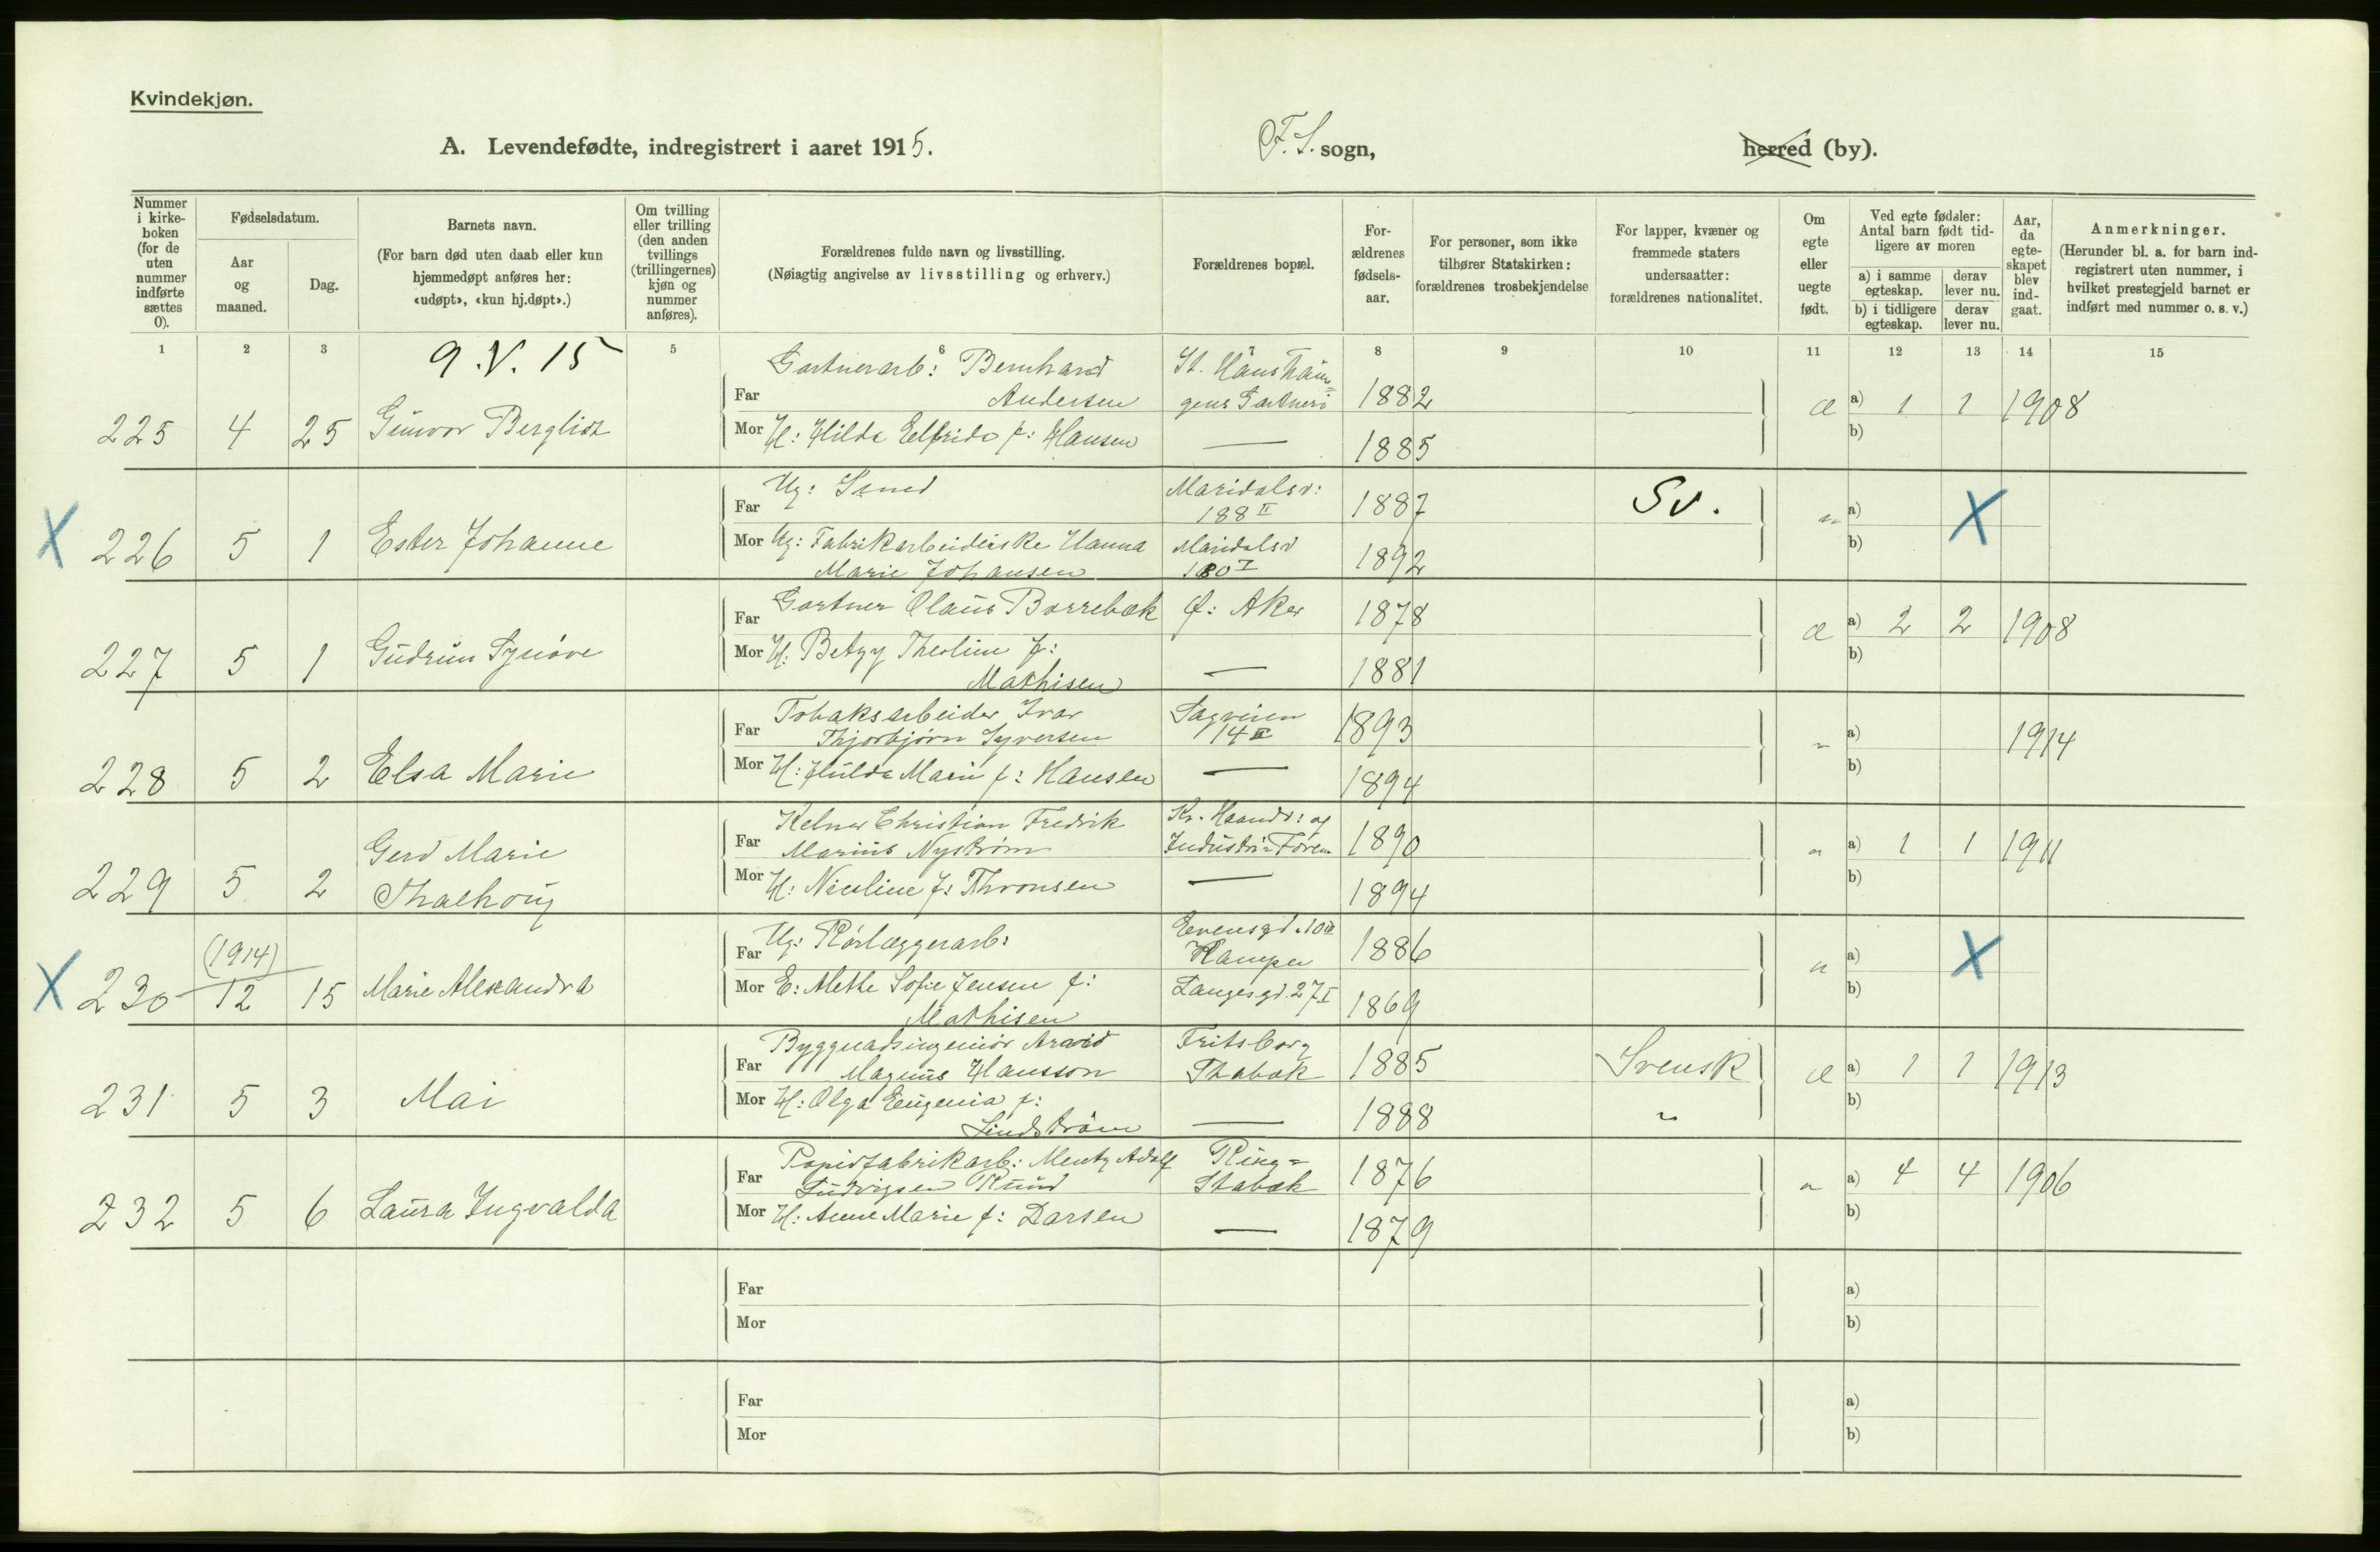 Kvindekjøn.
A. Levendefødte, indregistrert i aaret 1915.
F. S. sogn,
herred (by).
Nummer i kirkeboken (for de uten nummer indførte sættes 0).
Fødselsdatum.
Aar og maaned.
Dag.
Barnets navn.
(For barn død uten daab eller kun hjemmedøpt anføres her: «udøpt», «kun hj.døpt».)
Om tvilling eller trilling (den anden tvillings (trillingernes) kjøn og nummer anføres).
Forældrenes fulde navn og livsstilling.
(Nøiagtig angivelse av livsstilling og erhverv.)
Forældrenes bopæl.
Forældrenes fødselsaar.
For personer, som ikke tilhører Statskirken: forældrenes trosbekjendelse
For lapper, kvæner og fremmede staters undersaatter: forældrenes nationalitet.
Om egte eller uegte født.
Ved egte fødsler: Antal barn født tidligere av moren
a) i samme egteskap. derav lever nu.
b) i tidligere egteskap. derav lever nu.
Aar, da egteskapet blev indgaat.
Anmerkninger.
(Herunder bl. a. for barn indregistrert uten nummer, i hvilket prestegjeld barnet er indført med nummer o. s. v.)
1 2 3 5 6 7 8 9 10 11 12 13 14 15
9.V.15
225 4 25 Gunvor Bergliot
Far Gartnerarb: Bernhard Andersen St. Hanshaugens Gartneri 1882
Mor H: Hilda Elfrida f: Hansen — 1885
Æ a) 1 1 1908
b)
X 226 5 1 Ester Johanne
Far Ug: 1887 Sv.
Maridalsv: 188 II
Mor Ug: Fabrikarbeiderske Hanna Marie Johansen Maridalsv 180 I 1892
u a) X
b)
227 5 1 Gudrun Synøve
Far Gartner Olaus Borrebæk Ø: Aker 1878
Mor H: Betzy Theoline f: Mathisen — 1881
Æ a) 2 2 1908
b)
228 5 2 Elsa Marie
Far Tobaksarbeider Ivar Thjorbjørn Syversen Sagveien 14 1893
Mor H: Hulda Marie f: Hansen — 1894
" a) 1914
b)
229 5 2 Gerd Marie Thalhoug
Far Kelner Christian Fredrik Marius Nystrøm Kr. Haandv: og Industri-Foren. 1890
Mor H: Nicoline f: Thronsen — 1894
" a) 1 1 1911
b)
X 230 (1914) 12 15 Marie Alexandra
Far Ug: Rørlæggerarb: Evensgd. 10 1886
Mor E: Methe Sofie Jensen f: Mathisen Langesgd. 27 I 1869
u a) X
b)
231 5 3 Mai
Far Byggnadsingeniör Arvid Magnus Hansson Fritsborg Stabæk 1885 Svensk
Mor H: Olga Eugenia f: Lindström — 1888 "
Æ a) 1 1 1913
b)
232 5 6 Laura Ingvalda
Far Papirfabrikarb: Mentz Adolf Ludvigsen Ruud Ring= Stabæk 1876
Mor H: Anne Marie f: Larsen — 1879
" a) 4 4 1906
b)
Far a)
Mor b)
Far a)
Mor b)